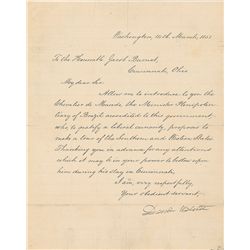 Washington, 14th March, 1851
To the Honorable Jacob Burnet
Cincinnati, Ohio
My dear Sir,
Allow me to introduce to you the
Chevalier de Macedo, the Minister Plenipoten-
tiary of Brazil accredited to this government,
who to gratify a liberal curiosity, proposes to
make a tour of the Southern and Western States
Thanking you in advance for any attentions
which it may be in your power to bestow upon
him during his stay in Cincinnati
I am, very respectfully,
Your obedient servant,
Daniel Webster